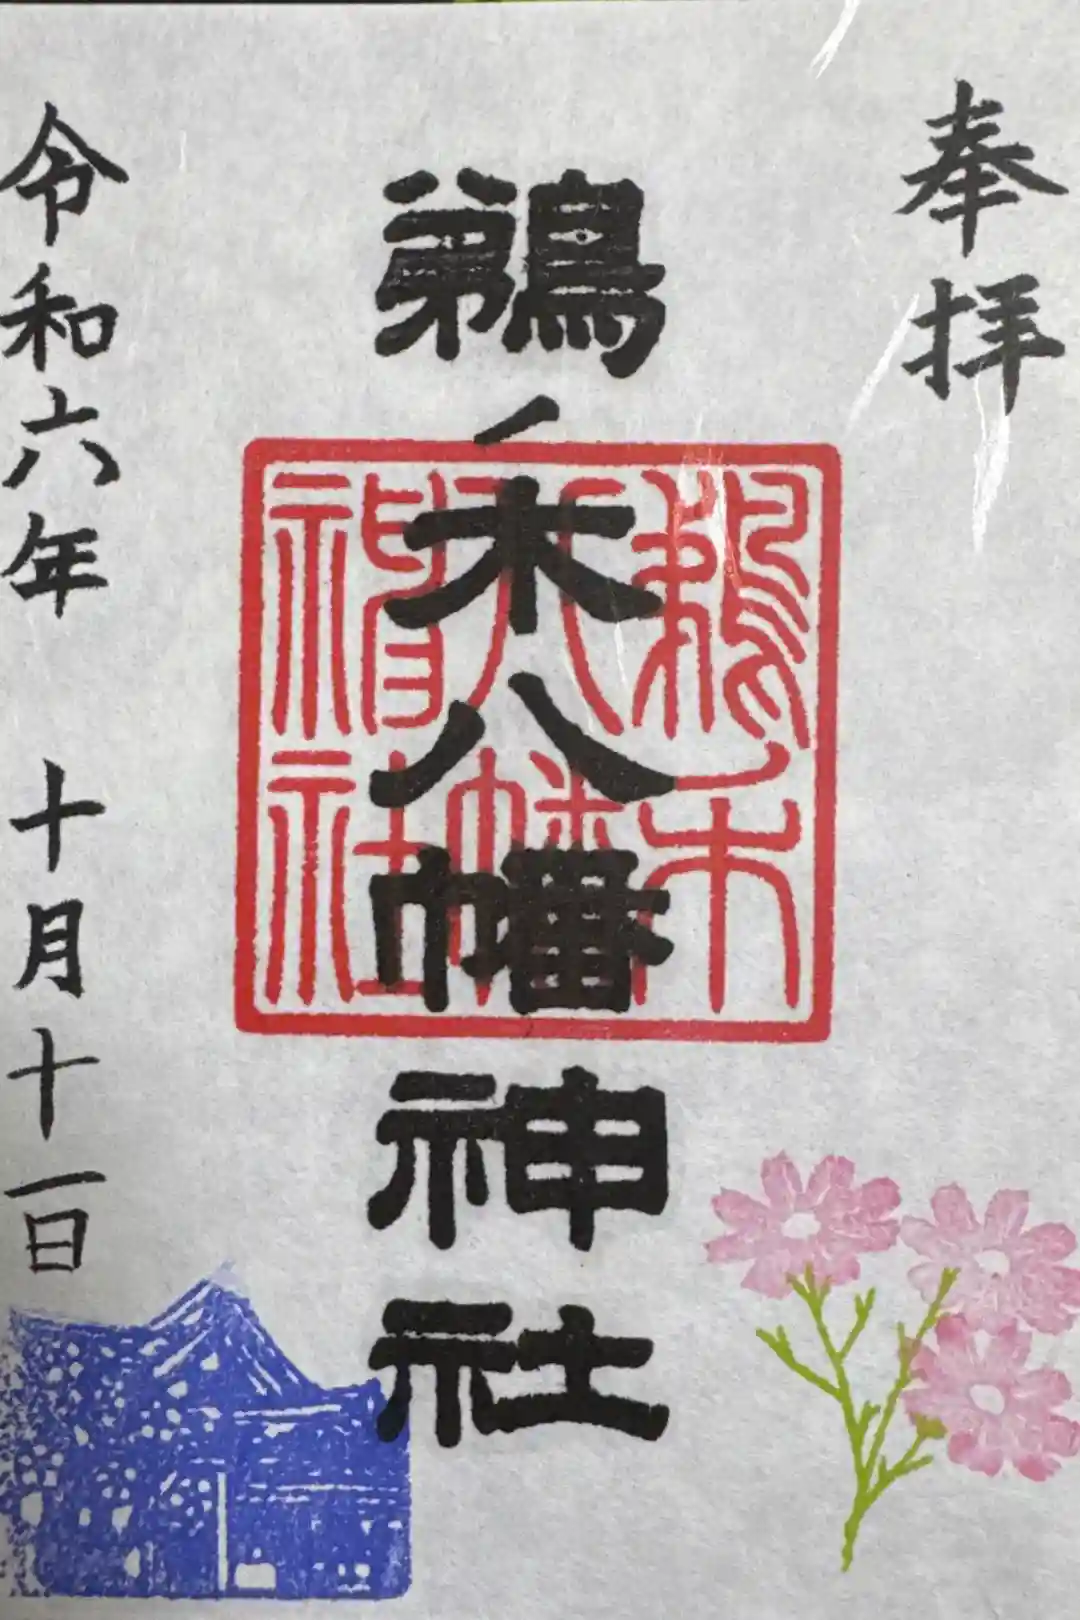 奉拝
鵜ノ木八幡神社
鵜ノ木
八幡
神社
令和六年 十月十一日